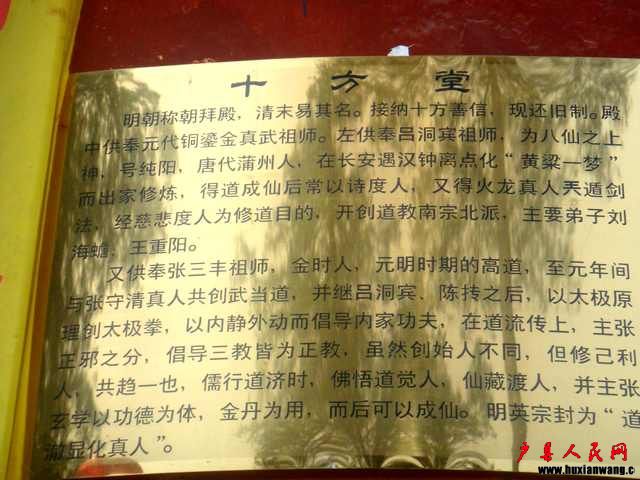 十方堂
明朝称朝拜殿，清末易其名。接纳十方善信，现还旧制。殿
中供奉元代铜鎏金真武祖师。左供奉吕洞宾祖师，为八仙之上
神，号纯阳，唐代蒲州人，在长安遇汉钟离点化“黄粱一梦”
而出家修炼，得道成仙后常以诗度人，又得火龙真人天遁剑
法，经慈悲度人为修道目的，开创道教南宗北派，主要弟子刘
海蟾、王重阳。
又供奉张三丰祖师，金时人，元明时期的高道，至元年间
与张守清真人共创武当道，并继吕洞宾、陈抟之后，以太极原
理创太极拳，以内静外动而倡导内家功夫，在道流传上，主张
正邪之分，倡导三教皆为正教，虽然创始人不同，但修己利
人，共趋一也，儒行道济时，佛悟道觉人，仙藏渡人，并主张
玄学以功德为体，金丹为用，而后可以成仙。明英宗封为“道
激显化真人”。
户县人民网
www.huxianwang.c